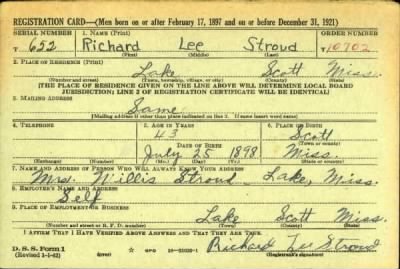 REGISTRATION CARD—(Men born on or after February 17, 1897 and on or before December 31, 1921)
SERIAL NUMBER 1. NAME (Print) ORDER NUMBER
T 652 Richard Lee Stroud T10702
(First) (Middle) (Last)
2. PLACE OF RESIDENCE (Print)
Lake Scott Miss.
(Number and street) (Town, township, village, or city) (County) (State)
[THE PLACE OF RESIDENCE GIVEN ON THE LINE ABOVE WILL DETERMINE LOCAL BOARD
JURISDICTION; LINE 2 OF REGISTRATION CERTIFICATE WILL BE IDENTICAL]
3. MAILING ADDRESS
Same
[Mailing address if other than place indicated on line 2. If same insert word same]
4. TELEPHONE 5. AGE IN YEARS 6. PLACE OF BIRTH
43 Scott
DATE OF BIRTH (Town or county)
July 25 1898 Miss.
(Exchange) (Number) (Mo.) (Day) (Yr.) (State or country)
7. NAME AND ADDRESS OF PERSON WHO WILL ALWAYS KNOW YOUR ADDRESS
Mrs. Willis Stroud Lake, Miss.
8. EMPLOYER'S NAME AND ADDRESS
Self
9. PLACE OF EMPLOYMENT OR BUSINESS
Lake Scott Miss.
(Number and street or R. F. D. number) (Town) (County) (State)
I AFFIRM THAT I HAVE VERIFIED ABOVE ANSWERS AND THAT THEY ARE TRUE.
D. S. S. Form 1 GPO
(Revised 1-1-42) (over) Richard Lee Stroud
(Registrant's signature)